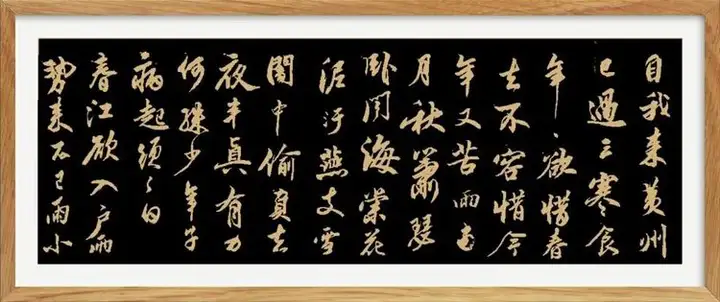 自我来黄州
已過三寒食
年〻欲惜春
去不容惜今
年又苦雨兩
月秋蕭瑟
卧聞海棠花
泥汙燕支雪
闇中偷負去
夜半真有力
何殊少年子
病起須已白
春江欲入户雨
勢来不已雨小